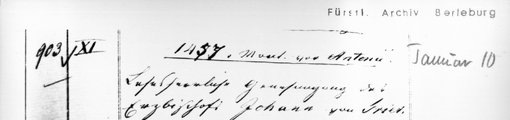 Fürstl. Archiv Berleburg
903 XI 1457. Mont. vor Antonii. Januar 10
Lehnsherrliche Genehmigung des
Erzbischofs Johann von Trier.